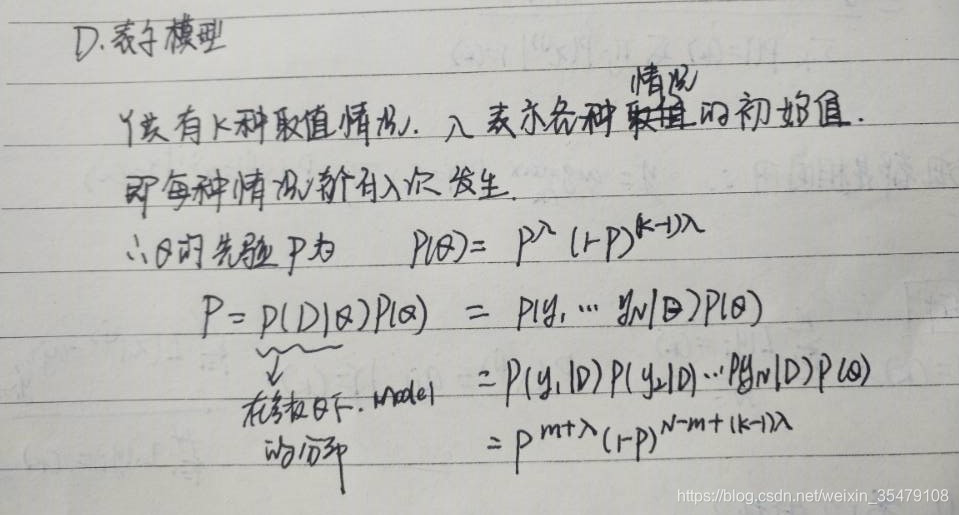 D. 表示模型
Y共有K种取值情况. λ 表示各种情况的初始值.
即每种情况都有λ次发生.
∴θ的先验P为 P(θ)= P^λ (1-P)^{(k-1)λ}
P = P(D|θ)P(θ) = P(y₁ … y_N|θ)P(θ)
= P(y₁|D) P(y₂|D) … P(y_N|D) P(θ)
在参数θ下. model
= P^{m+λ} (1-P)^{N-m+(k-1)λ}
https://blog.csdn.net/weixin_35479108